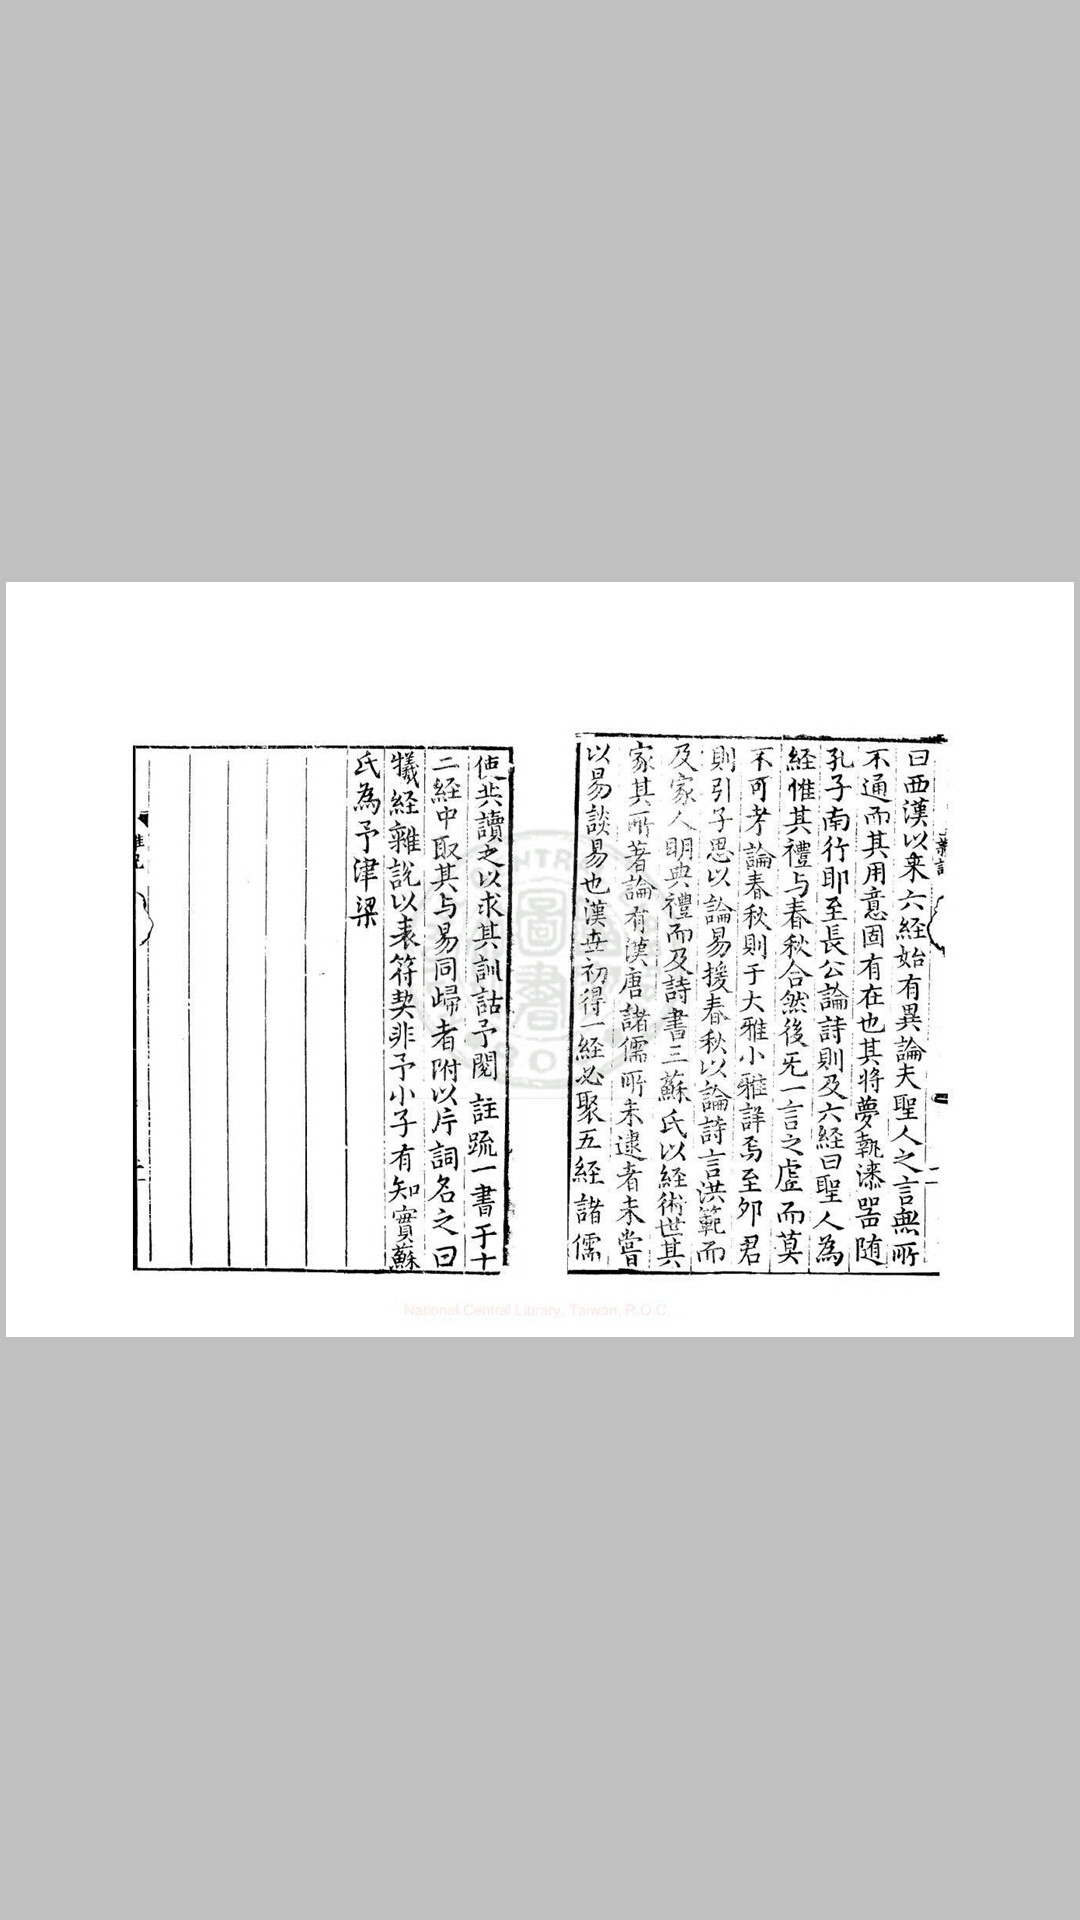 曰西漢以来六経始有異論夫聖人之言無所
不通而其用意固有在也其将夢執漆噐随
孔子南行耶至長公論詩則及六経曰聖人為
経惟其禮与春秋合然後旡一言之虚而莫
不可考論春秋則于大雅小雅詳焉至卯君
則引子思以論易援春秋以論詩言洪範而
及家人明典禮而及詩書三蘇氏以経術世其
家其所著論有漢唐諸儒所未逮者未嘗
以易談易也漢世初得一経必聚五経諸儒
使共讀之以求其訓詁予閱 註疏一書于十
二経中取其与易同歸者附以片詞名之曰
犧経雜説以表符契非予小子有知實蘇
氏為予津梁
二
National Central Library, Taiwan, R.O.C.